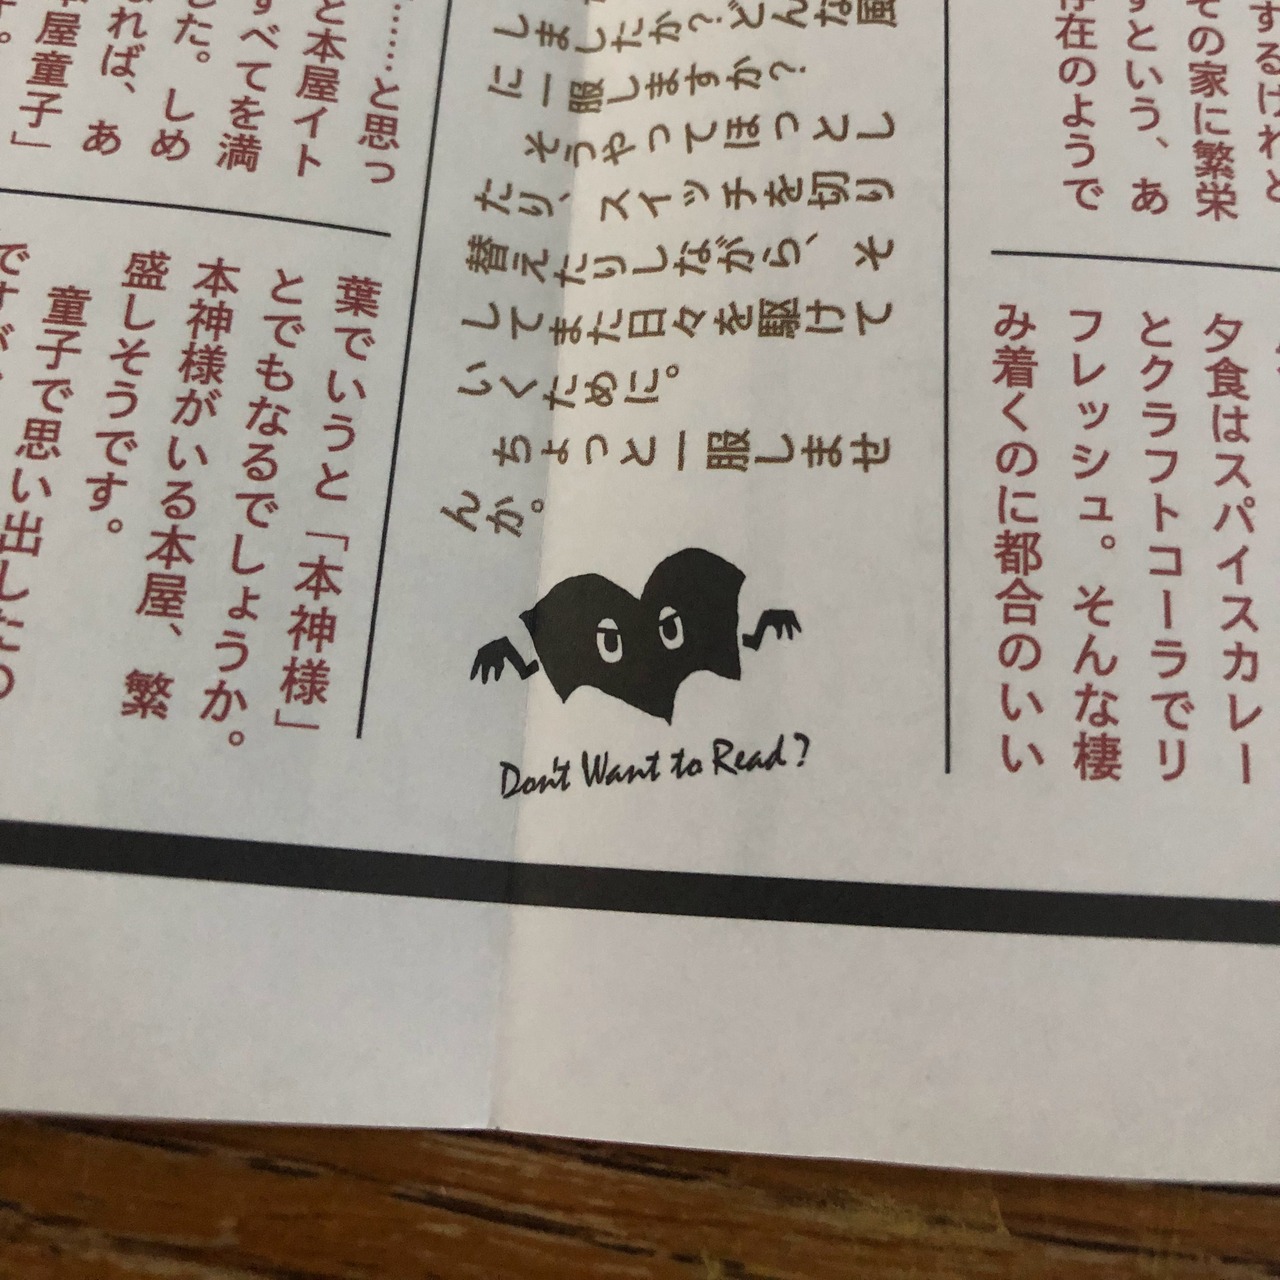 するけれど
その家に繁栄
すという、あ
存在のようで
夕食はスパイスカレー
とクラフトコーラでリ
フレッシュ。そんな棲
み着くのに都合のいい
しましたか？どんな風
に一服しますか？
そうやってほっとし
たり、スイッチを切り
替えたりしながら、そ
してまた日々を駆けて
いくために。
ちょっと一服しませ
んか。
Don't Want to Read?
……と思っ
と本屋イト
すべてを満
した。しめ
れば、あ
本屋童子」
す。
葉でいうと「本神様」
とでもなるでしょうか。
本神様がいる本屋、繁
盛しそうです。
童子で思い出したの
ですが、